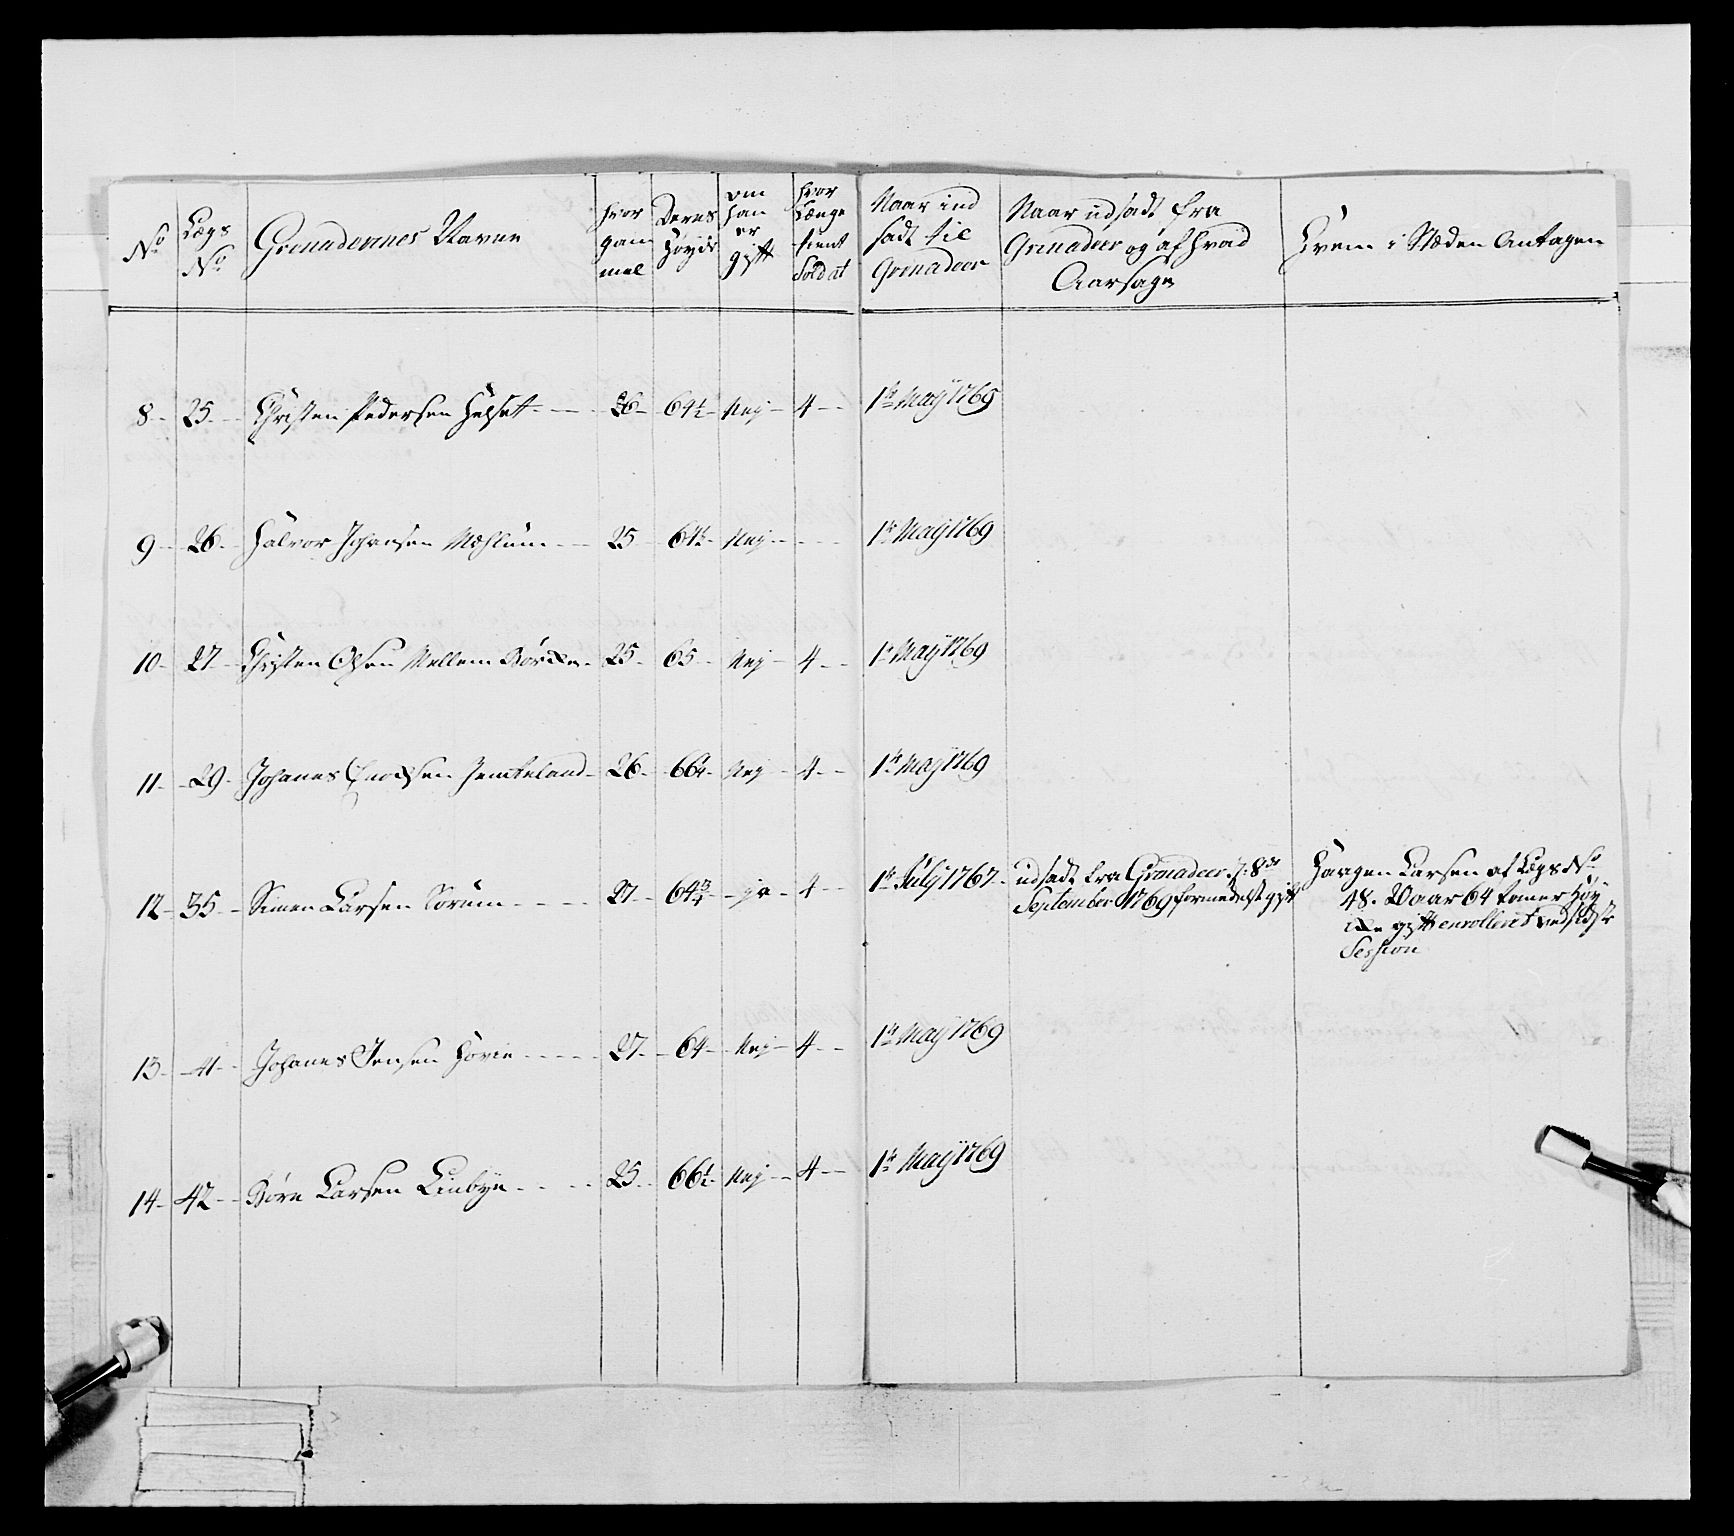 No
Lægs No
Grenaderernes Navne
hvor gam mel
Deres Høyde
om han er gift
hvor Længe tient Soldat
Naar ind sadt til Grenadeer
Naar udsadt fra Grenadeer og af hvad Aarsage
Hvem i Stæden Antagen
8 - 25 - Christen Pedersen Helset - 26 - 64½ - Nej - 4 - 1te Maÿ 1769
9 - 26 - Halvor Johansen Mæhlum - 25 - 64½ - Nej - - 1te Maÿ 1769
10 - 27 - Christen Olsen Mellem - 25 - 65 - Nej - 4 - 1te Maÿ 1769
11 - 29 - Johanes Enochsen Jemteland - 26 - 66¼ - Nej - 4 - 1te Maÿ 1769
12 - 35 - Simen Larsen Sørum - 27 - 64¾ - ja - 4 - 1te Julÿ 1767 - udsadt fra Grenadeer d: 8de
September 1769 formedelst gift
Haagen Larsen af Lægs No
48. 20 aar 64 tomer Høy
gift enrolleret ved sidste
Session
13 - 41 - Johanes Jensen Hovie - 27 - 64 - Nej - 4 - 1te Maÿ 1769
14 - 42 - Børe Larsen Linbye - 25 - 66½ - Nej - 4 - 1te Maÿ 1769